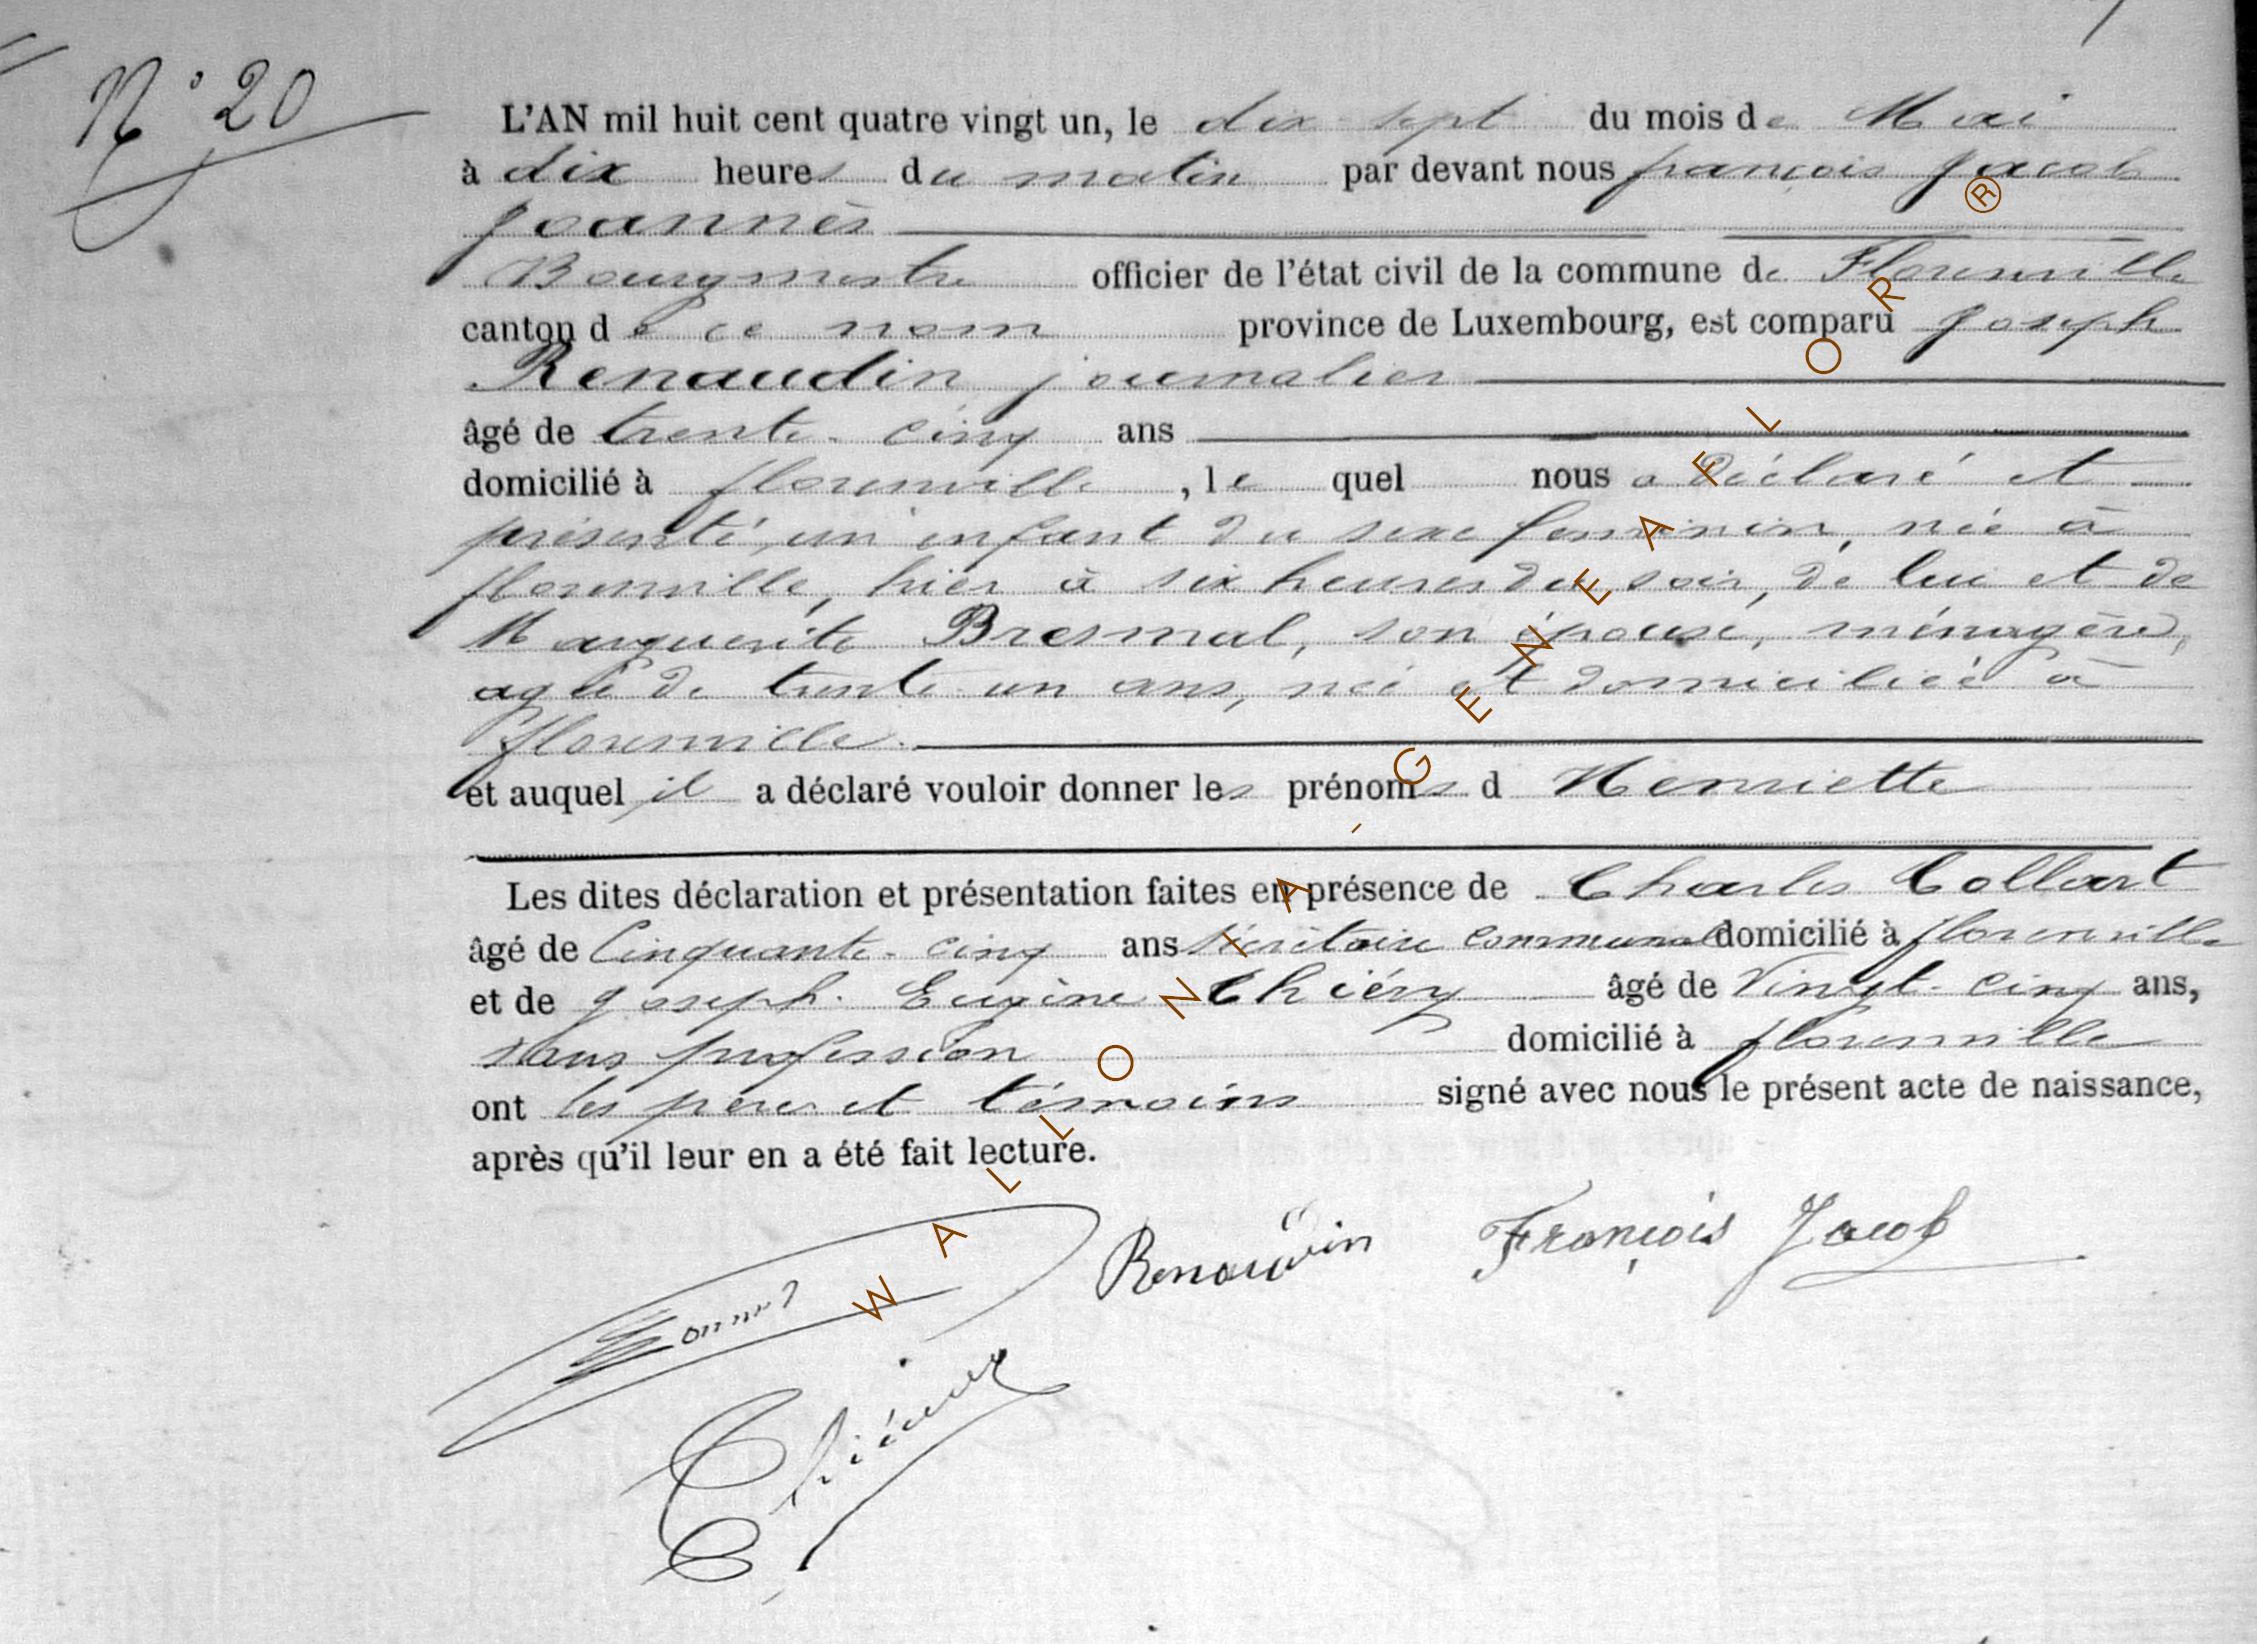 N° 20
L'AN mil huit cent quatre vingt un, le dix sept du mois de Mai
à dix heures du matin par devant nous françois Jacob
Joannès
Bourgmestre officier de l'état civil de la commune de Florenville
canton de ce nom province de Luxembourg, est comparu Joseph
Renaudin journalier
âgé de trente-cinq ans
domicilié à florenville, le quel nous a déclaré et
présenté, un enfant du sexe féminin, née à
florenville, hier à six heures du soir, de lui et de
Marguerite Bresmal, son épouse, ménagère,
agée de trente-un ans, née et domiciliée à
florenville.
et auquel il a déclaré vouloir donner les prénoms d Henriette
Les dites déclaration et présentation faites en présence de Charles Collart
âgé de Cinquante-cinq ans sécrétaire communal domicilié à florenville
et de Joseph-Eugène Thiéry âgé de Vingt-cinq ans,
sans profession domicilié à florenville
ont les père et témoins signé avec nous le présent acte de naissance,
après qu'il leur en a été fait lecture.
Renaudin François Jacob
WALLONIA-GENEAFLOR®